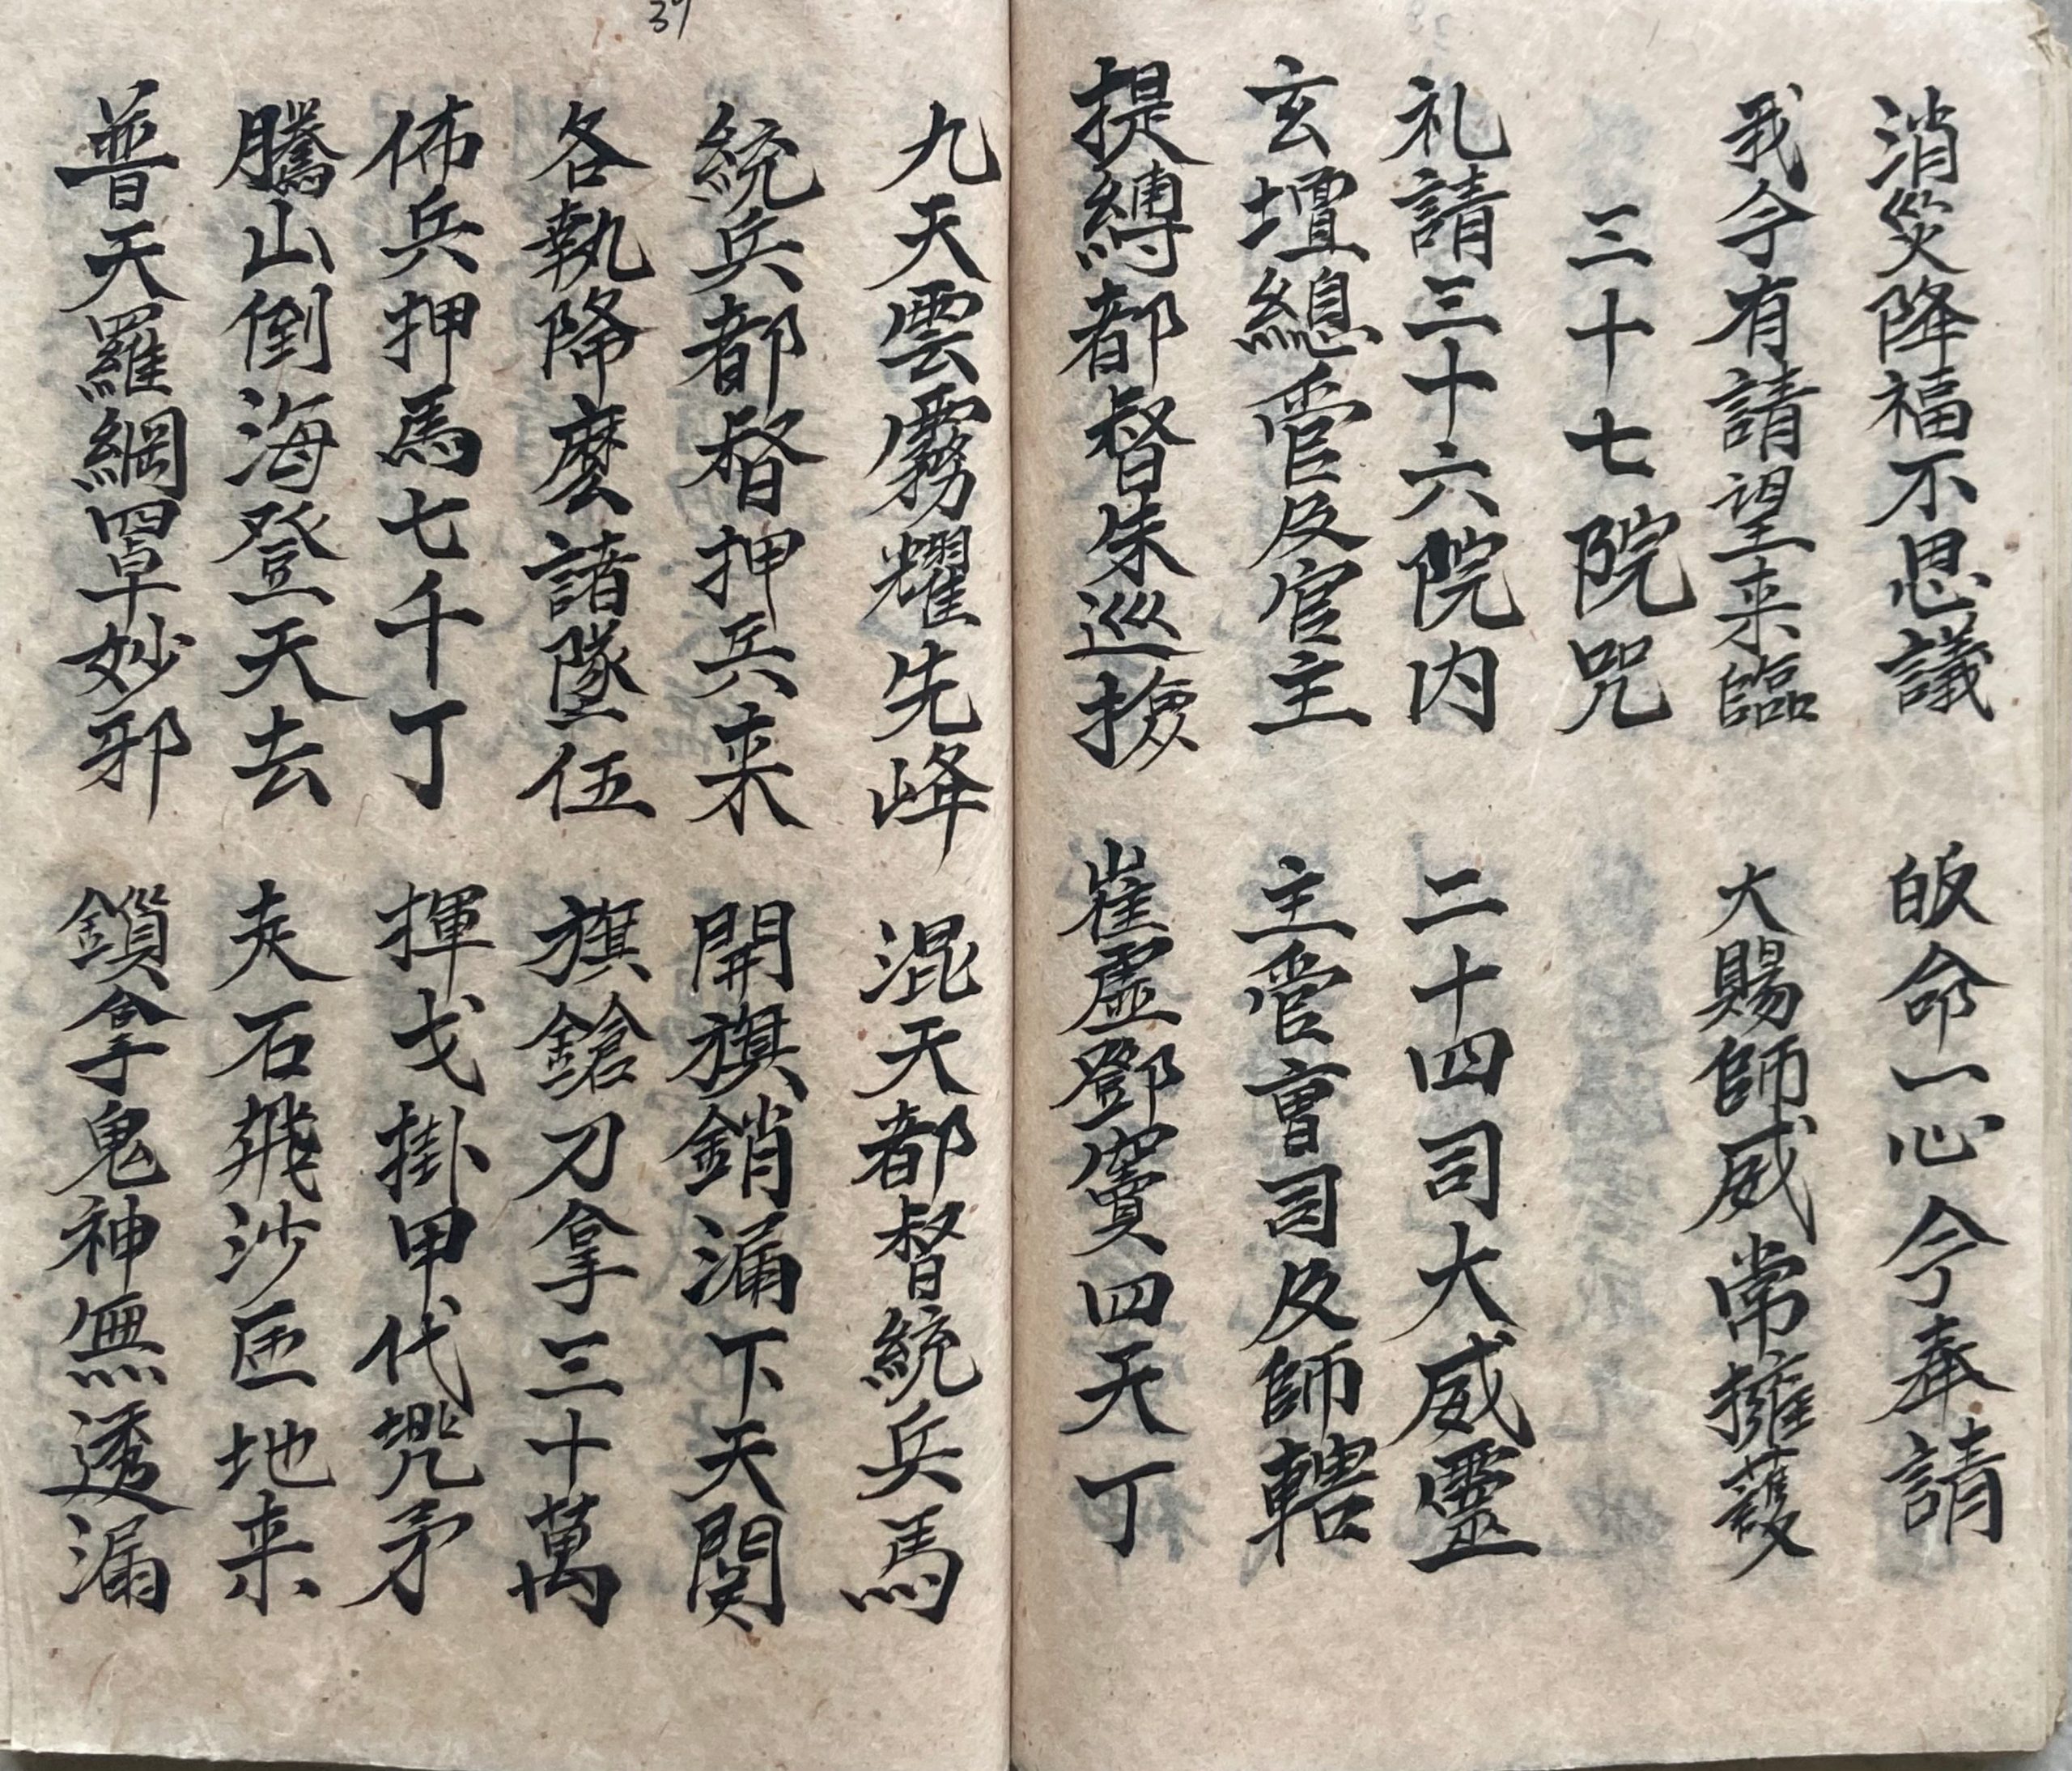 消災降福不思議　皈命一心今奉請
我今有請望来臨　大賜師威常擁護
三十七院咒
礼請三十六院内　二十四司大威靈
玄壇總管及官主　主管曺司及師轄
提縛都督朱巡撿　崔盧鄧竇四天丁
37
九天雲霧耀先峰　混天都督統兵馬
統兵都督押兵来　開旗銷漏下天関
各執降麼諸隊伍　旗鎗刀拿三十萬
佈兵押馬七千丁　揮戈掛甲代兜矛
騰山倒海登天去　走石飛沙匝地来
普天羅綱罩妙邪　鎖拿鬼神無透漏